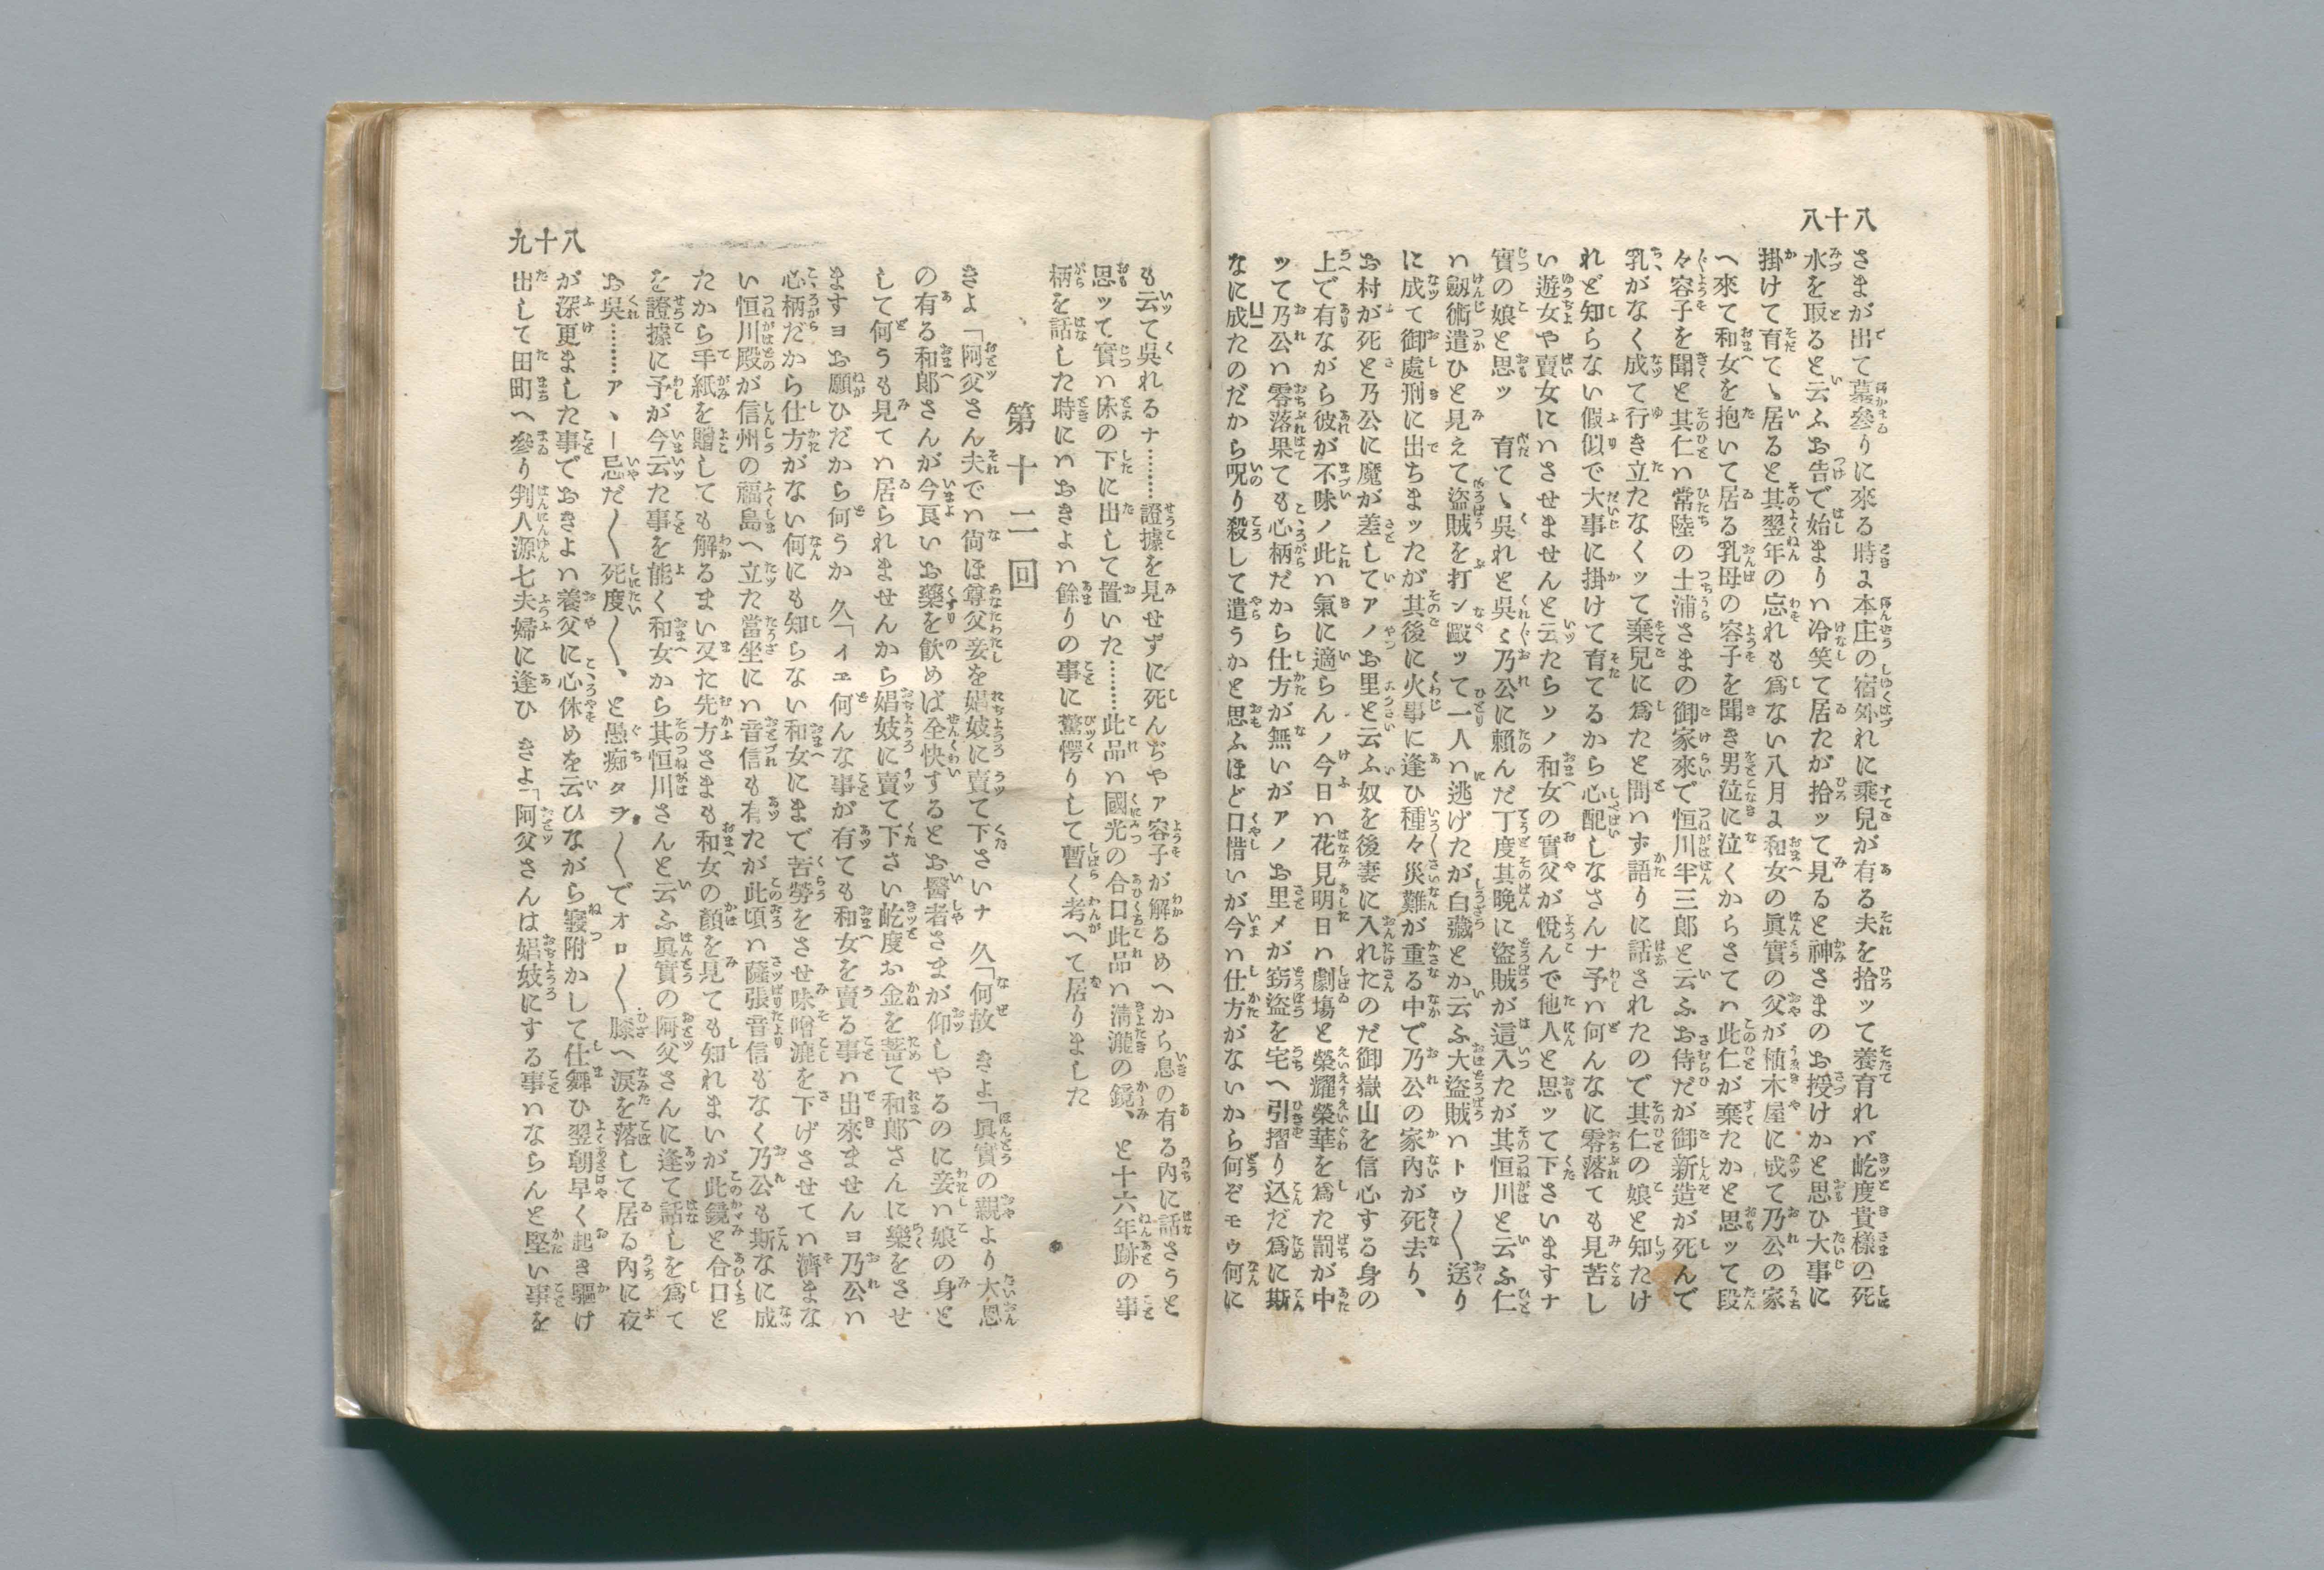 八十八
さまが出て墓參りに來る時ゟ本庄の宿外れに乘兒が有る夫を拾ッて養育れバ屹度貴樣の死
水を取ると云ふお告で始まりハ冷笑て居たが拾ッて見ると神さまのお授けかと思ひ大事に
掛けて育てゝ居ると其翌年の忘れも爲ない八月ゟ和女の眞實の父が植木屋に成て乃公の家
へ來て和女を抱いて居る乳母の容子を聞き男泣に泣くからさてハ此仁が棄たかと思ッて段
々容子を聞と其仁ハ常陸の土浦さまの御家來で恒川半三郎と云ふお侍だが御新造が死んで
乳がなく成て行き立たなくッて棄兒に爲たと問ハず語りに話されたので其仁の娘と知たけ
れど知らない假似で大事に掛けて育てるから心配しなさんナ予ハ何んなに零落ても見苦し
い遊女や賣女にハさせませんと云たらソノ和女の實父が悅んで他人と思ッて下さいますナ
實の娘と思ッ 育てゝ呉れと呉〻乃公に賴んだ丁度其晩に盜賊が這入たが其恒川と云ふ仁
ハ劔術遣ひと見えて盜賊を打ン毆ッて一人ハ逃げたが白藏とか云ふ大盜賊ハトウ〱送り
に成て御處刑に出ちまッたが其後に火事に逢ひ種々災難が重る中で乃公の家內が死去り、
お村が死と乃公に魔が差してアノお里と云ふ奴を後妻に入れたのだ御嶽山を信心する身の
上で有ながら彼が不味ノ此ハ氣に適らんノ今日ハ花見明日ハ劇塲と榮耀榮華を爲た罰が中
ッて乃公ハ零落果ても心柄だから仕方が無いがアノお里メが窃盜を宅へ引摺り込だ爲に斯
なに成たのだから呪り殺して遣うかと思ふほど口惜いが今ハ仕方がないから何ぞモウ何に
八十九
も云て吳れるナ………證據を見せずに死んぢやァ容子が解るめへから息の有る內に話さうと
思ッて實ハ床の下に出して置いた………此品ハ國光の合口此品ハ淸瀧の鏡、と十六年跡の事
柄を話した時にハおきよハ餘りの事に驚愕りして暫く考へて居りました
第十二回
きよ「阿父さん夫でハ尙ほ尊父妾を娼妓に賣て下さいナ 久「何故 きよ「眞實の親より大恩
の有る和郞さんが今良いお藥を飮めば全快するとお醫者さまが仰しやるのに妾ハ娘の身と
して何うも見てハ居られませんから娼妓に賣て下さい屹度お金を蓄て和郞さんに樂をさせ
ますヨお願ひだから何うか 久「イエ何んな事が有ても和女を賣る事ハ出來ませんヨ乃公ハ
心柄だから仕方がない何にも知らない和女にまで苦勞をさせ味噌漉を下げさせてハ濟まな
い恒川殿が信州の福島へ立た當坐にハ音信も有たが此頃ハ薩張音信もなく乃公も斯なに成
たから手紙を贈しても解るまい又た先方さまも和女の顏を見ても知れまいが此鏡と合口と
を證據に予が今云た事を能く和女から其恒川さんと云ふ眞實の阿父さんに逢て話しを爲て
お吳………アヽー忌だ〱死度〱、と愚痴タラ〱でオロ〱膝へ淚を落して居る內に夜
が深更ました事でおきよハ養父に心休めを云ひながら寢附かして仕舞ひ翌朝早く起き驅け
出して田町へ參り判人源七夫婦に逢ひ きよ「阿父さんは娼妓にする事ハならんと堅い事を